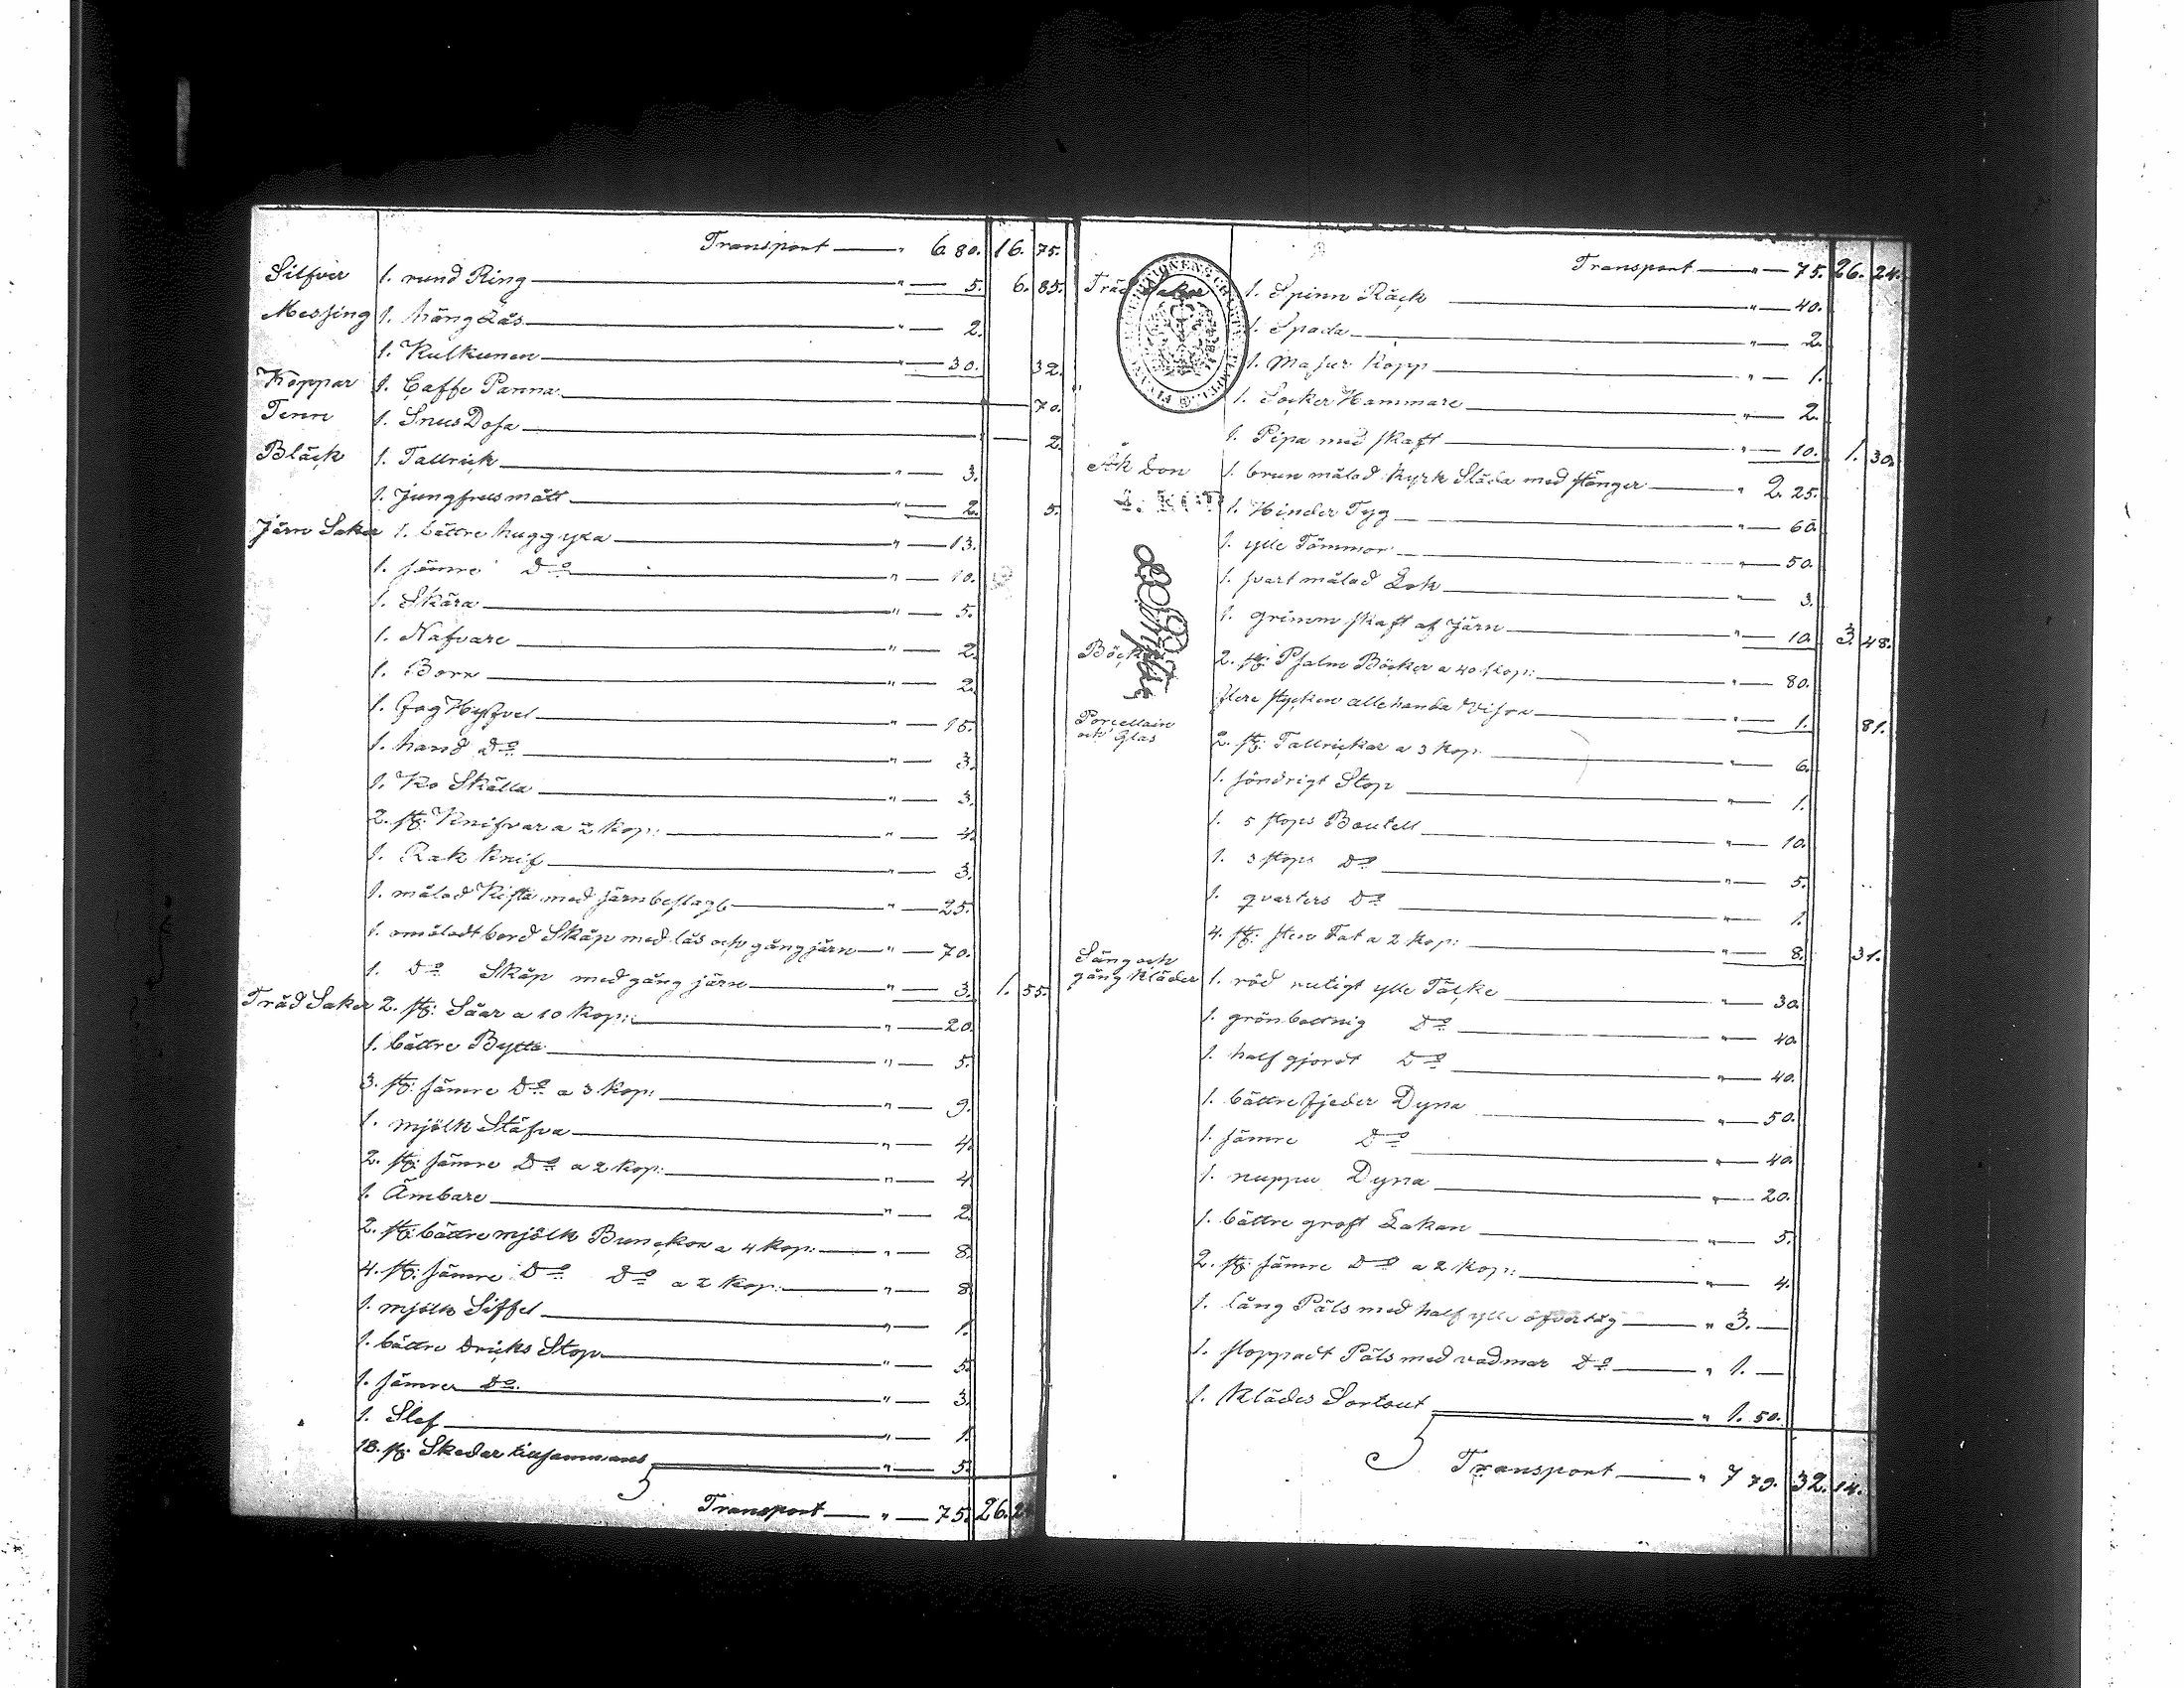 Transport — " 6. 80. 16. 75.
Silfver 1. rund Ring — " — 5. 6. 85.
Messing 1. häng Lås — " — 2.
1. Kulkunen — " — 30. 32.
Koppar 1. Caffe Panna — 70.
Tenn 1. Snus Dosa — 2.
Bläck 1. Tallrick — " — 3.
1. Jungfrus mått — " — 2. 5.
Järn Saker 1. bättre hugg yxa — " — 13.
1. sämre Do — " — 10.
1. Skära — " — 5.
1. Nafvare — " — 2.
1. Borr — " — 2.
1. Hyfvel — " — 15.
1. hand Do — " — 3.
1. Ko Skälla — " — 3.
2. st: Knifvar a 2 kop: — " — 4.
1. Rak knif — " — 3.
1. målad Kista med järnbeslag — " — 25.
1. omåladt bord Skåp med lås och gångjärn — " — 70.
1. Do Skåp med gång järn — " — 3. 1. 55.
Träd Saker 2. st: Såar a 10 kop: — " — 20.
1. bättre Bytta — " — 5.
3. st: sämre Do a 3 kop: — " — 9.
1. mjölk Stäfva — " — 4.
2. st: sämre Do a 2 kop: — " — 4.
1. Ämbare — " — 2.
2. st: bättre mjölk Bunckar a 4 kop: — " — 8.
4. st: sämre Do Do a 2 kop: — " — 8.
1. mjölk Siffel — " — 1.
1. bättre Dricks Stop — " — 5.
1. sämre Do. — " — 3.
1. Slef — " — 1.
18. st: Skedar tillsammans — " — 5.
Transport — " — 75. 26.
Transport — " — 75. 26. 24.
Träd Saker 1. Spinn Råck — " — 40.
1. Spada — " — 2.
1. Masur Kopp — " — 1.
1. Socker Hammare — " — 2.
1. Pipa med skaft — " — 10. 1. 30.
Åk don 1. brun målad kyrk Släda med stänger — " 2. 25.
1. Hinder Tyg — " — 60.
1. ylle Tömmar — " — 50.
1. svart målad Lok — " — 3.
1. grimm skaft af järn — " — 10. 3. 48.
Böcker 2. st: Psalm Böcker a 40 kop: — " — 80.
flere stycken allehanda Visor — " — 1. 81.
Porcellain
och Glas 2. st: Tallrickar a 3 kop: — " — 6.
1. söndrigt Stop — " — 1.
1. 5 stops Boutell — " — 10.
1. 3 stops Do — " — 5.
1. qvarters Do — " — 1.
4. st: sten Fat a 2 kop: — " — 8. 31.
Säng och
gång kläder 1. röd rutigt ylle Täcke — " — 30.
1. grönbottnig Do — " — 40.
1. half gjordt Do — " — 40.
1. bättre fjeder Dyna — " — 50.
1. sämre Do — " — 40.
1. nuppu Dyna — " — 20.
1. bättre groft Lakan — " — 5.
2. st: sämre Do a 2 kop: — " — 4.
1. lång Päls med half ylle öfvertÿg — " 3. —
1. stoppadt Päls med vadmar Do — " 1. —
1. Klädes Sortout — " 1. 50.
Transport — " 7 79. 32. 14.